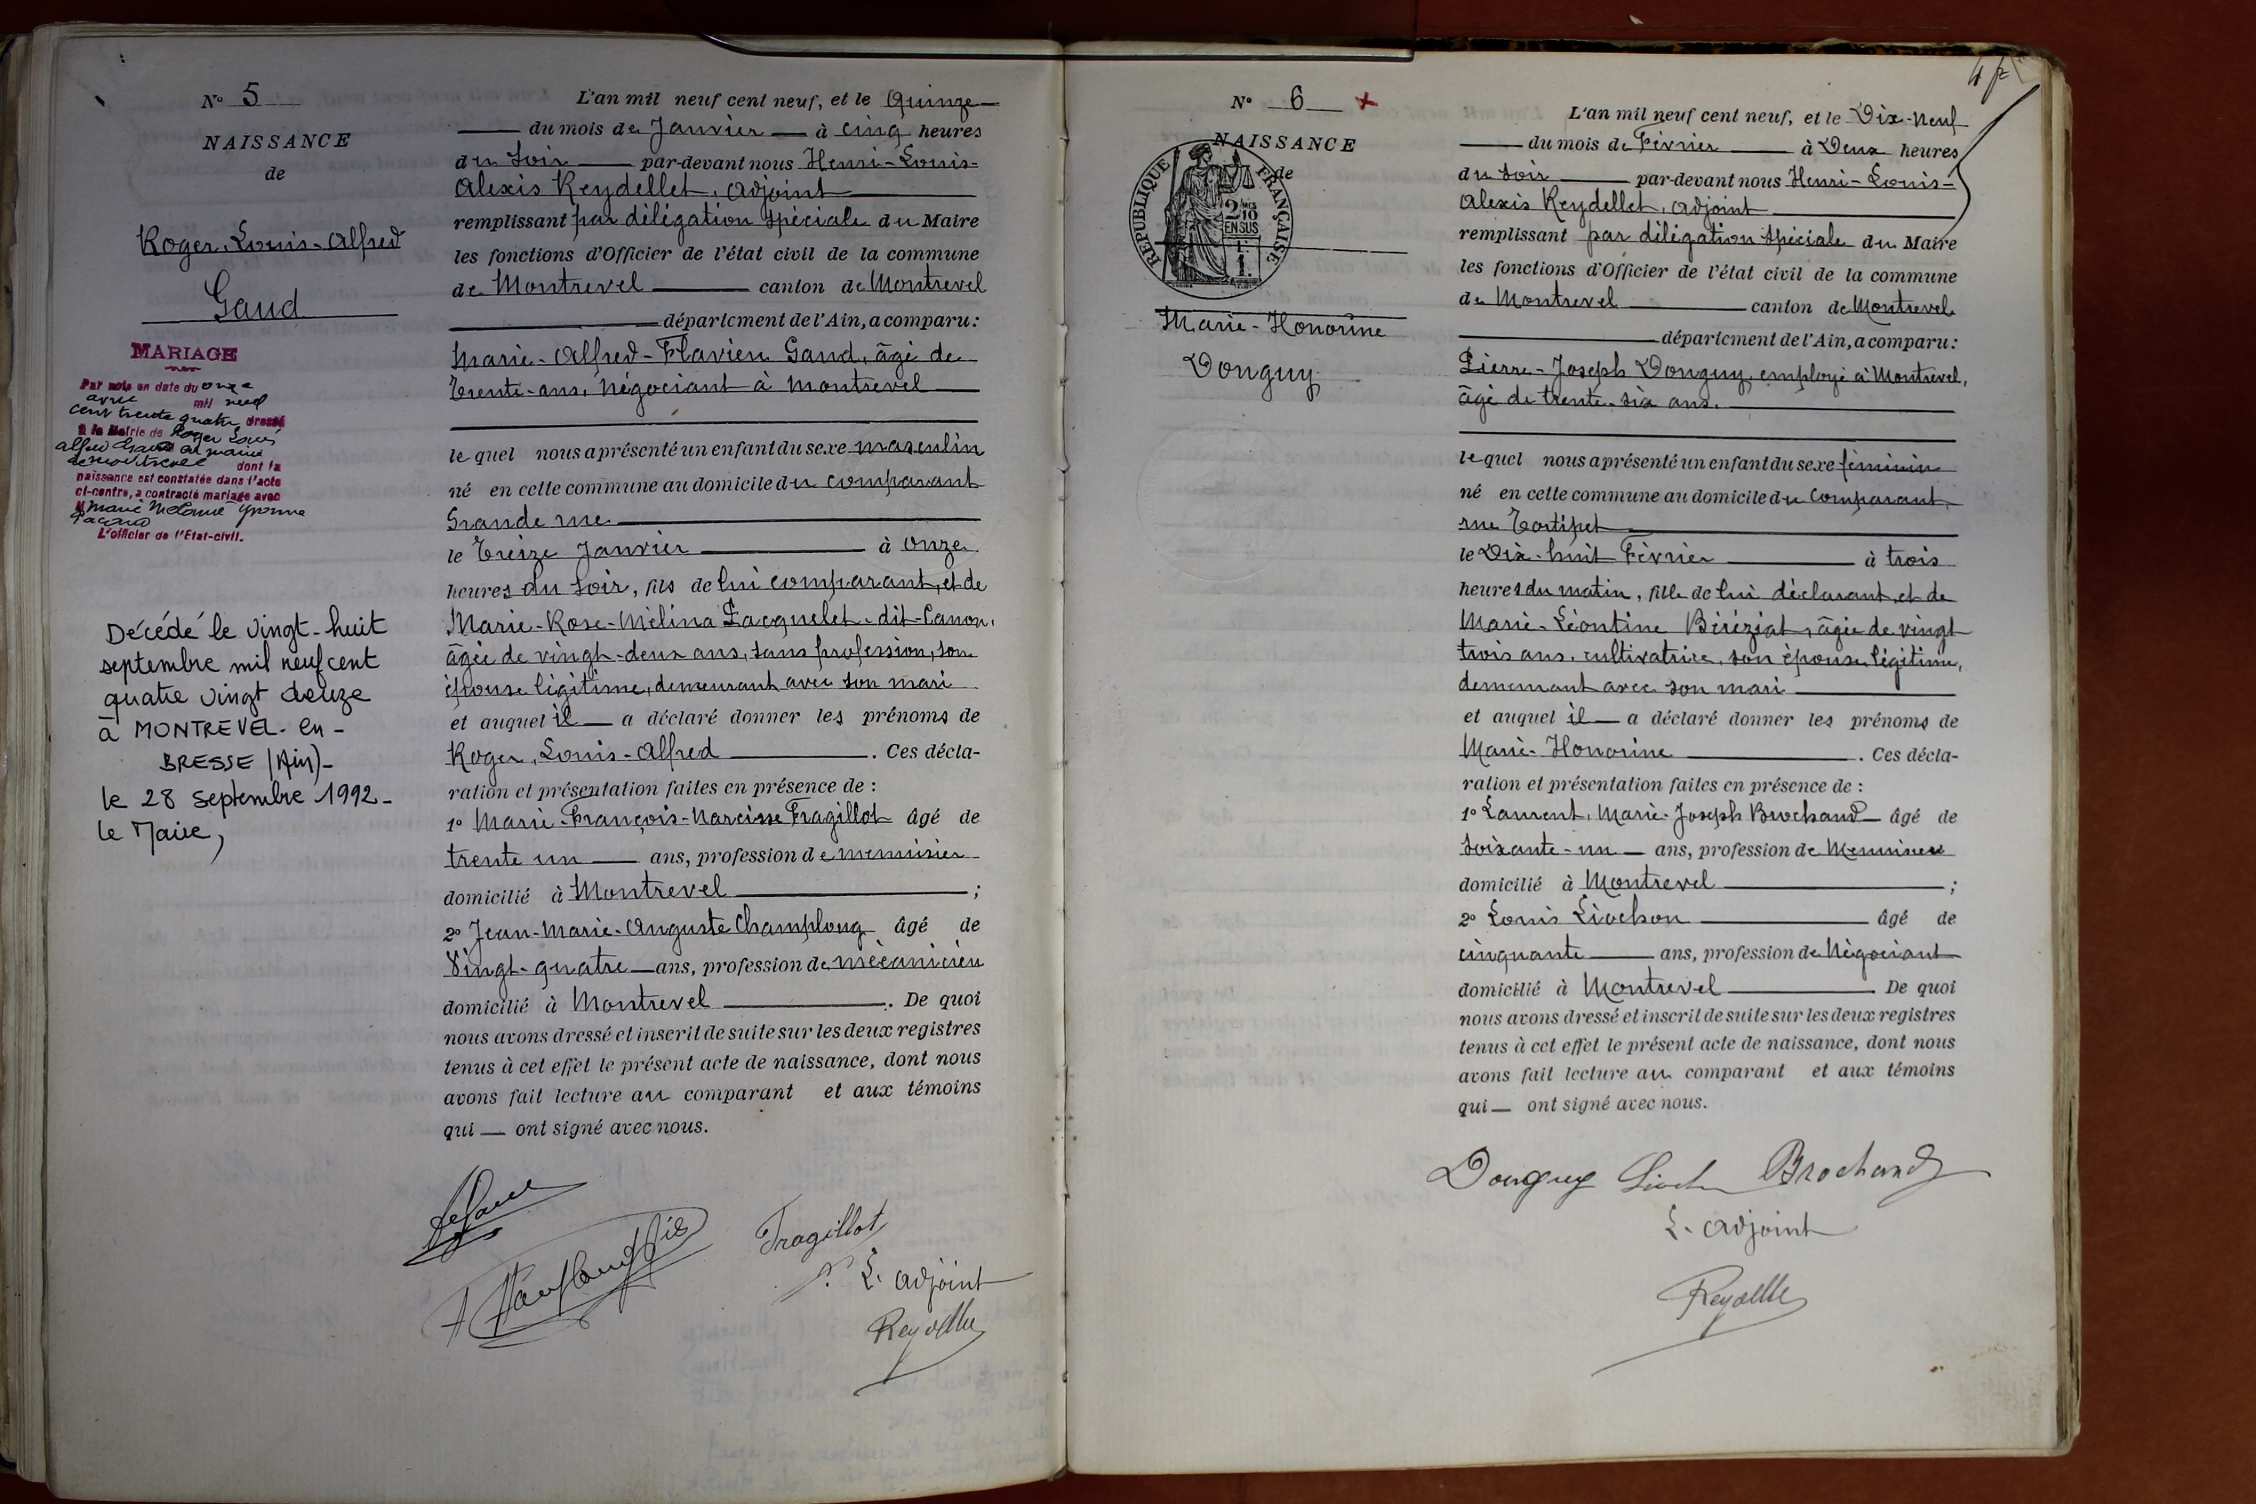 N° 5
NAISSANCE
de
Roger, Louis-Alfred
Gaud
MARIAGE
Par acte en date du onze
avril mil neuf
cent trente quatre dressé
à la Mairie de Roger Louis
Alfred Gaud
de Montrevel dont la
naissance est constatée dans l'acte
ci-contre, a contracté mariage avec
Marie Mélanie Yvonne
L'officier de l'Etat-civil.
Décédé le vingt-huit
septembre mil neuf cent
quatre vingt douze
à MONTREVEL-en-
BRESSE (Ain)-
le 28 septembre 1992-
le Maire,
L'an mil neuf cent neuf, et le Quinze
du mois de Janvier à cinq heures
du soir par-devant nous Henri-Louis-
Alexis Reydellet, adjoint
remplissant par délégation spéciale du Maire
les fonctions d'Officier de l'état civil de la commune
de Montrevel canton de Montrevel
département de l'Ain, a comparu :
Marie-Alfred-Flavien Gaud, âgé de
trente-ans, négociant à Montrevel
le quel nous a présenté un enfant du sexe masculin
né en cette commune au domicile du comparant
Grande rue
le treize Janvier à onze
heures du soir, fils de lui comparant, et de
Marie-Rose-Mélina Pacquelet-dit-Canon,
âgée de vingt-deux ans, sans profession, son
épouse légitime, demeurant avec son mari
et auquel il a déclaré donner les prénoms de
Roger, Louis-Alfred . Ces décla-
ration et présentation faites en présence de :
1° Marie-François-Narcisse Fragillot âgé de
trente un ans, profession de menuisier
domicilié à Montrevel ;
2° Jean-Marie-Auguste Champloug âgé de
Vingt-quatre ans, profession de mécanicien
domicilié à Montrevel . De quoi
nous avons dressé et inscrit de suite sur les deux registres
tenus à cet effet le présent acte de naissance, dont nous
avons fait lecture au comparant et aux témoins
qui ont signé avec nous.
Fragillot
L'adjoint
Reydellet
N° 6
NAISSANCE
de
REPUBLIQUE FRANÇAISE
2/10
EN SUS
Marie-Honorine
Donguy
L'an mil neuf cent neuf, et le Dix-neuf
du mois de Février à Deux heures
du soir par-devant nous Henri-Louis-
Alexis Reydellet, adjoint
remplissant par délégation spéciale du Maire
les fonctions d'Officier de l'état civil de la commune
de Montrevel canton de Montrevel
département de l'Ain, a comparu :
Pierre-Joseph Donguy, employé à Montrevel,
âgé de trente-six ans.
le quel nous a présenté un enfant du sexe féminin
né en cette commune au domicile du comparant,
rue Tortipet
le Dix-huit Février à trois
heures du matin, fille de lui déclarant, et de
Marie-Léontine Béréziat, âgée de vingt
trois ans, cultivatrice, son épouse légitime,
demeurant avec son mari
et auquel il a déclaré donner les prénoms de
Marie-Honorine . Ces décla-
ration et présentation faites en présence de :
1° Laurent, Marie-Joseph Brochand âgé de
soixante-un ans, profession de Menuisier
domicilié à Montrevel ;
2° Louis Liochon âgé de
cinquante ans, profession de Négociant
domicilié à Montrevel De quoi
nous avons dressé et inscrit de suite sur les deux registres
tenus à cet effet le présent acte de naissance, dont nous
avons fait lecture au comparant et aux témoins
qui ont signé avec nous.
Donguy Brochand
L'adjoint
Reydellet